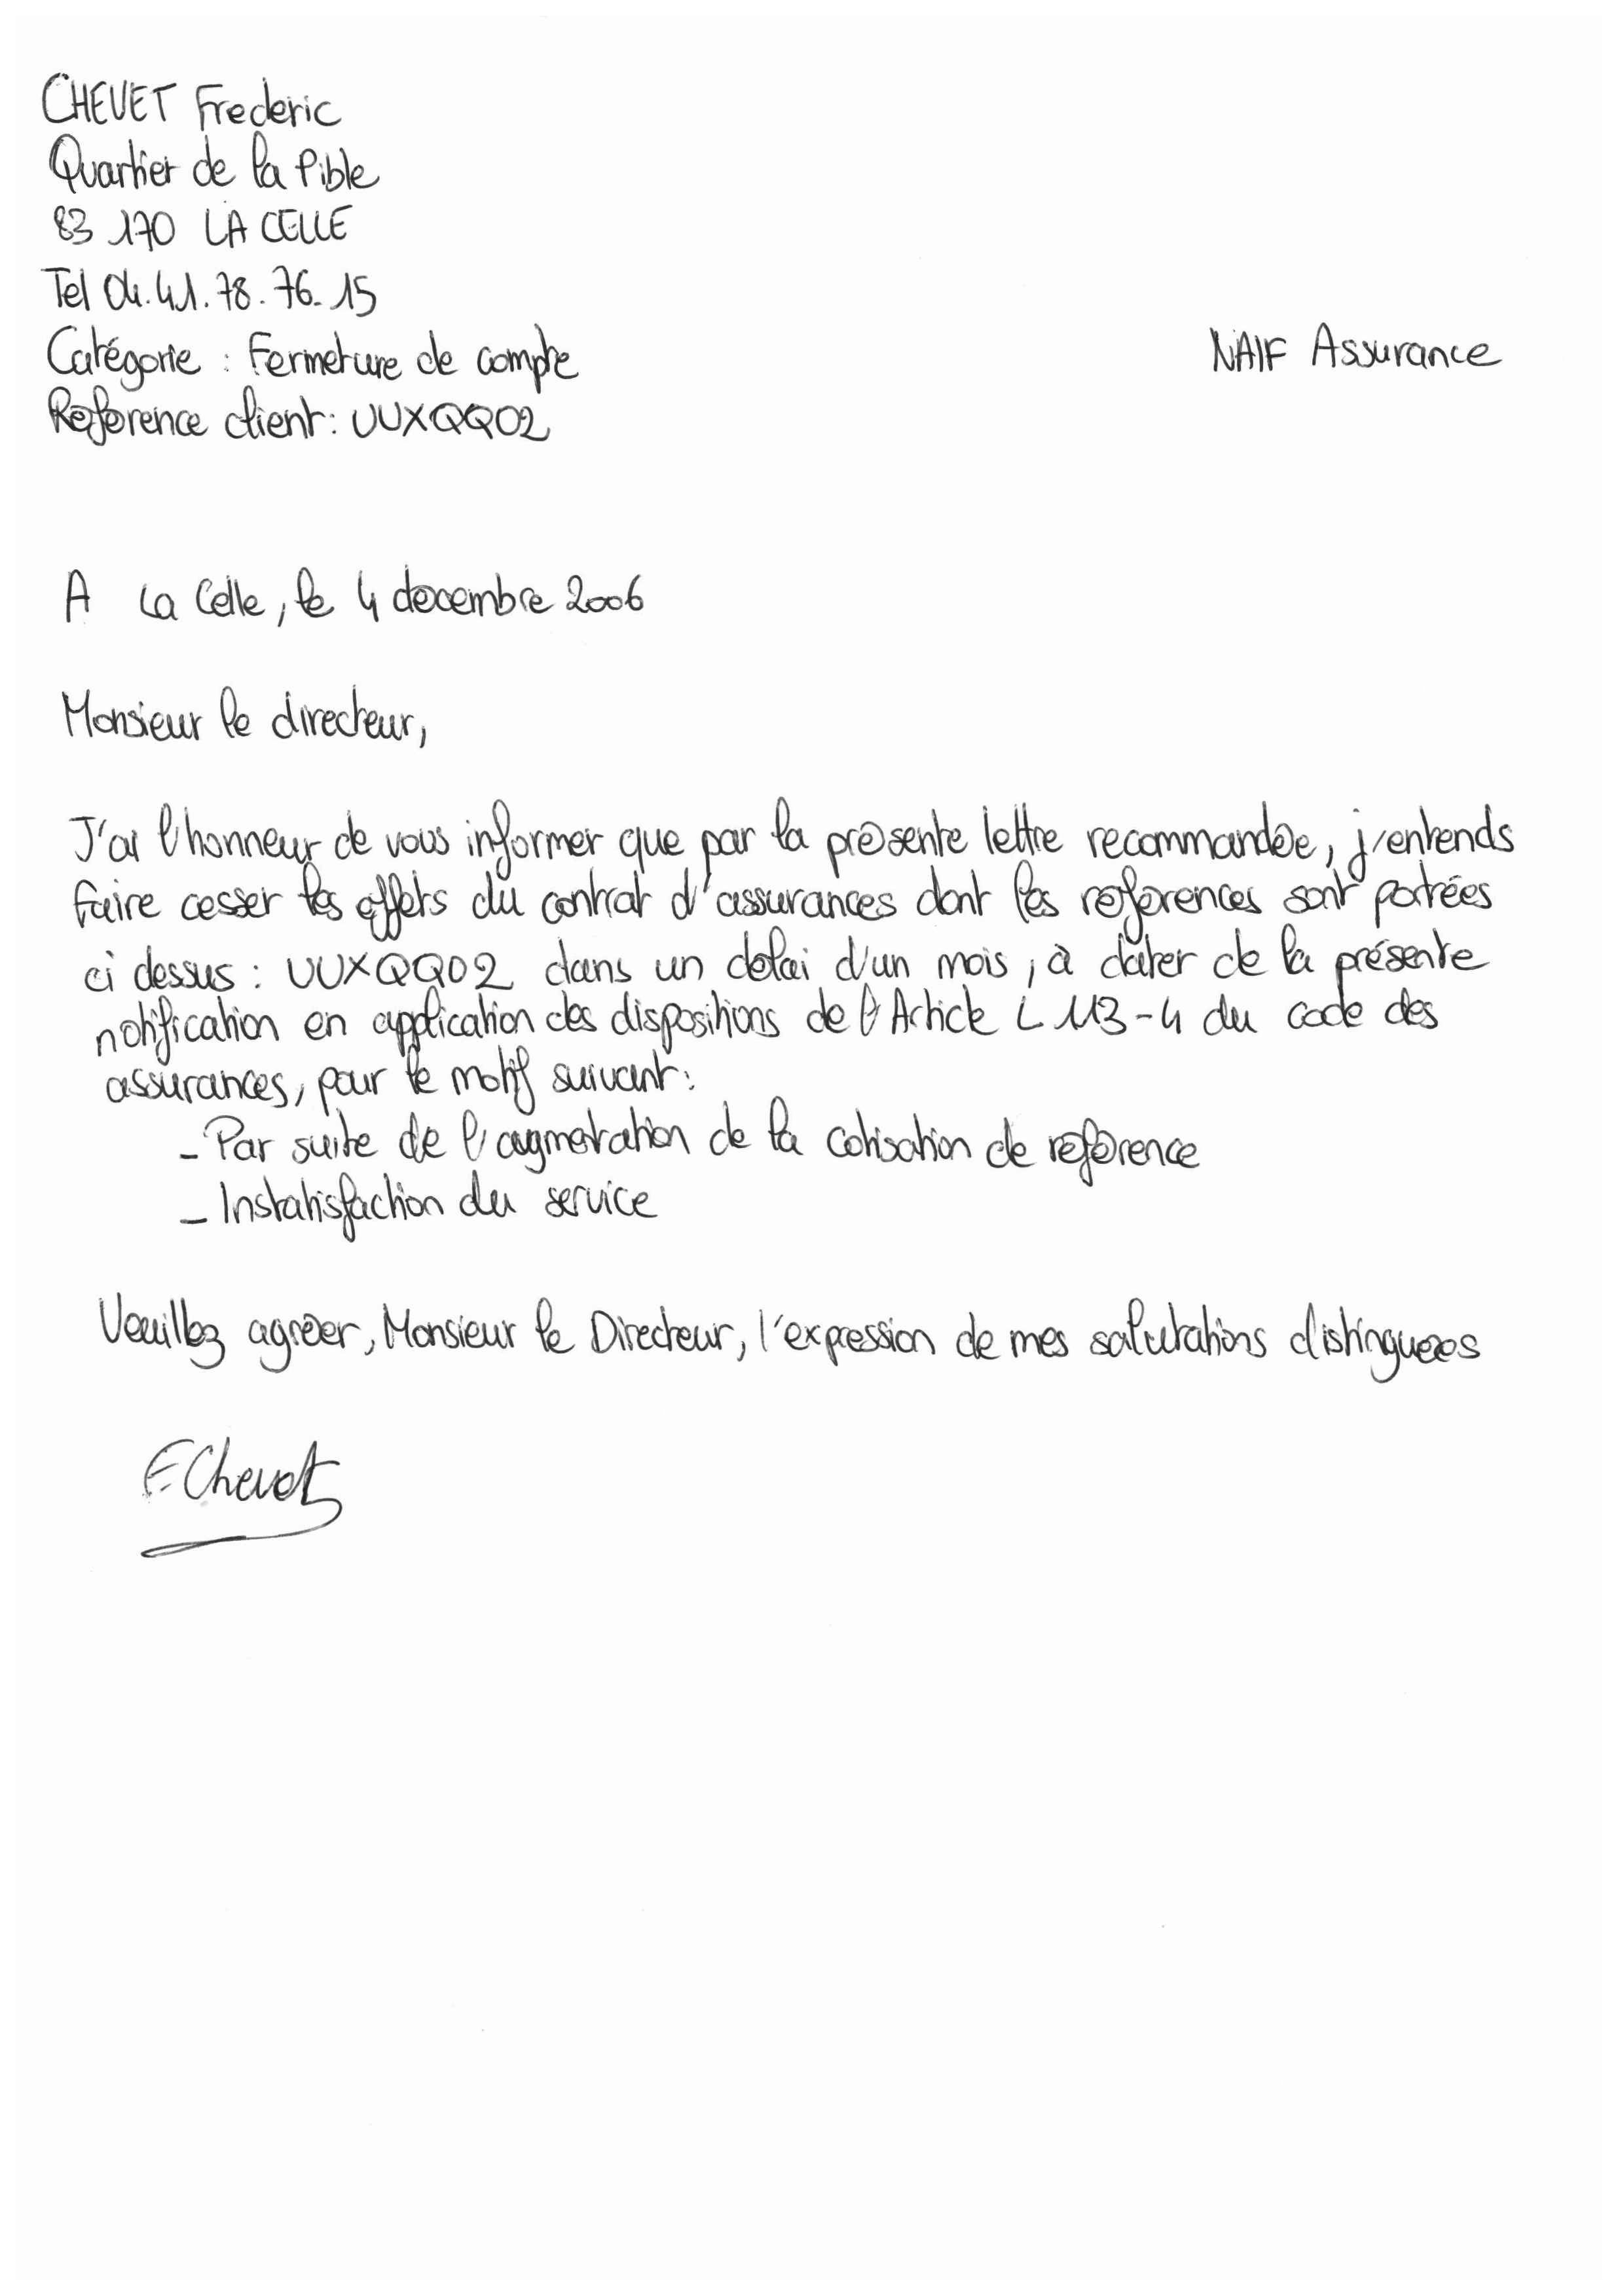 CHEVET Frederic
Quartier de la Pible
83 170 LA CELLE
Tel 04.41.78.76.15
Catégorie : Fermeture de compte
NAIF Assurance
Référence client : UUXQQ02
A La Celle, le 4 décembre 2006
Monsieur le directeur,
J'ai l'honneur de vous informer que par la présente lettre recommandée, j'entends
faire cesser les effets du contrat d'assurances dont les références sont portées
ci dessus : UUXQQ02 dans un délai d'un mois, à dater de la présente
notification en application des dispositions de l'Article L 113-4 du code des
assurances, pour le motif suivant :
- Par suite de l'augmetation de la cotisation de référence
- Instatisfaction du service
Veuillez agréer, Monsieur le Directeur, l'expression de mes salutations distinguées
F Chevet